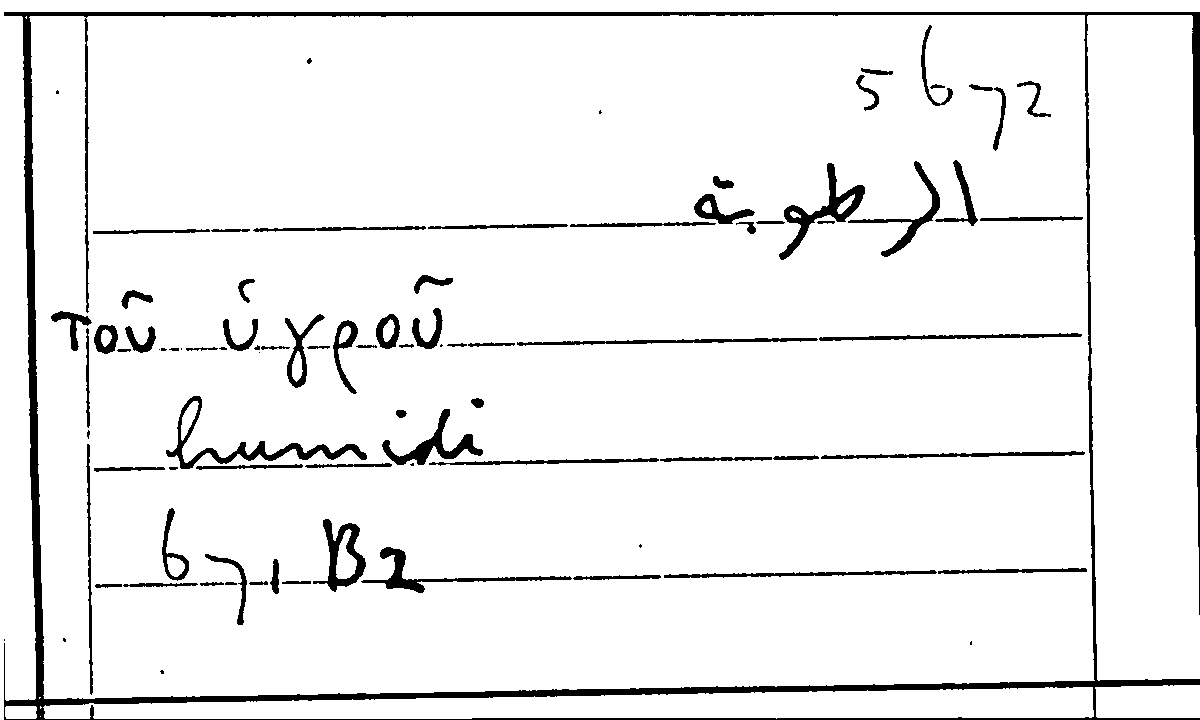 5672
الرطوبة
τοῦ ὑγροῦ
humidi
671 B2